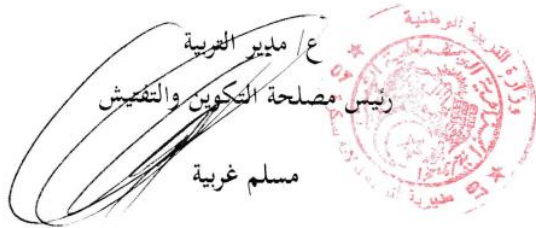 ع/ مدير التربية
رئيس مصلحة التكوين والتفتيش
مسلم غربية
وزارة التربية الوطنية
07
07